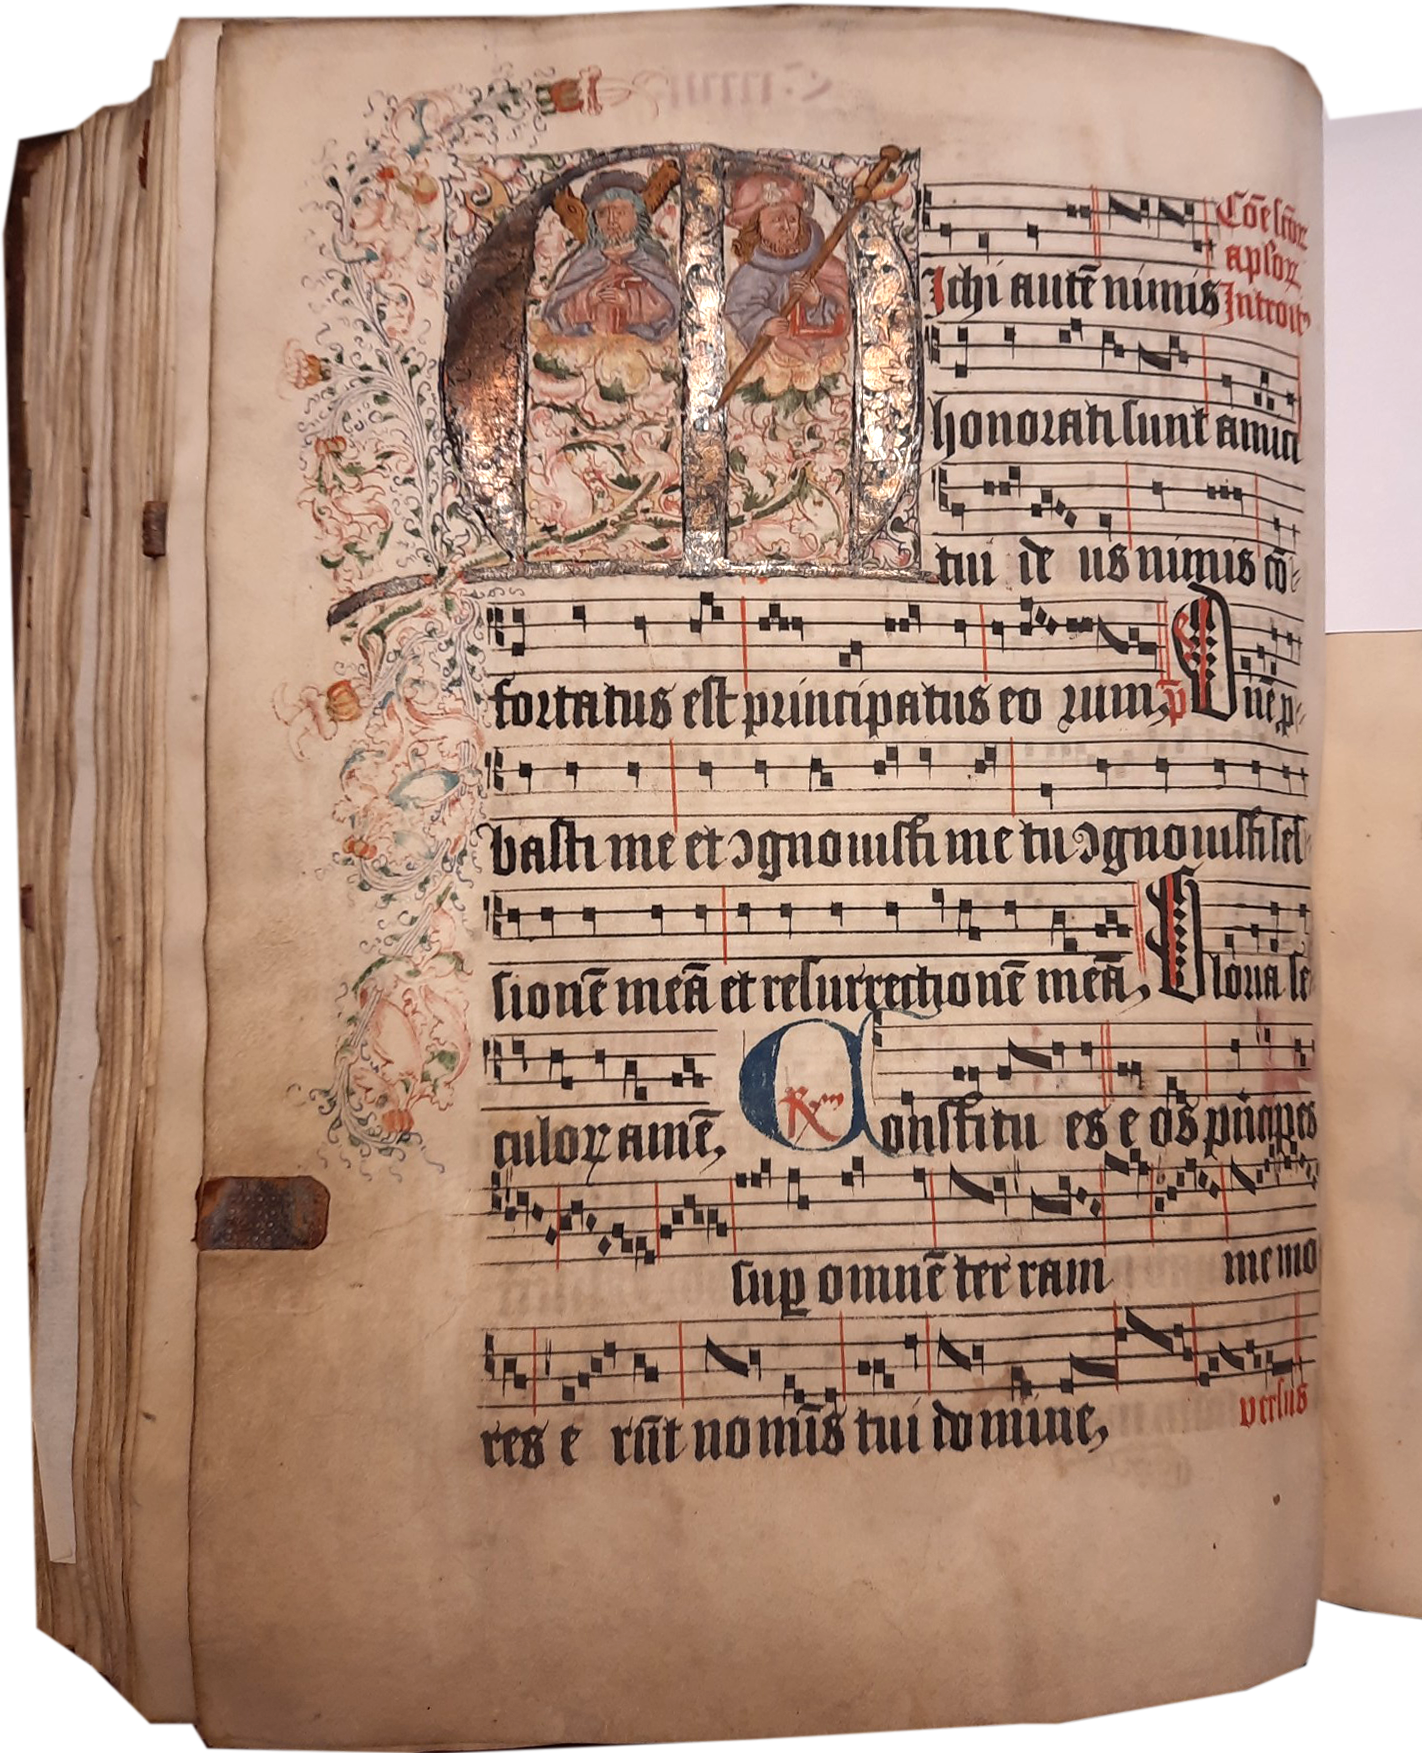 Cōe sctōꝝ
apl'oꝝ
Michi autē nimis Introit⁹
honorati sunt amici
tui de us nimis cō-
fortatus est principatus eo rum, p̄s Dn̄e p-
basti me et ꝯgnouisti me tu ꝯgnouisti ses-
sionē meā et resurrectionē meā, Gloria se
culoꝝ amē, R̄m Constitu es e os prīcipes
suꝑ omnē ter ram memo
res e rūt nomīs tui domine, versus